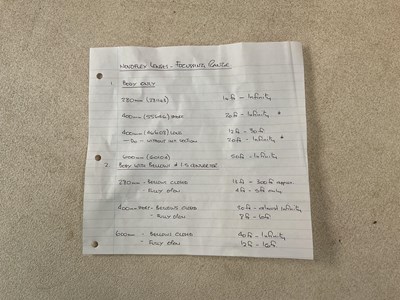 NOVOFLEX LENSES - FOCUSING RANGE
1. BODY ONLY
280mm 10ft - Infinity
400mm 20ft - Infinity *
400mm LONG 12ft - 30ft
- Do - WITHOUT EXT. SECTION 20ft - Infinity *
600mm 50ft - Infinity
2. BODY WITH BELLOWS & 1.5 CONVERTER
280mm - BELLOWS CLOSED 13ft - 300ft approx.
- FULLY OPEN 4ft - 5ft
400mm - BELLOWS CLOSED 20ft - almost Infinity
- FULLY OPEN 8ft - 10ft
600mm - BELLOWS CLOSED 40ft - Infinity
- FULLY OPEN 12ft -